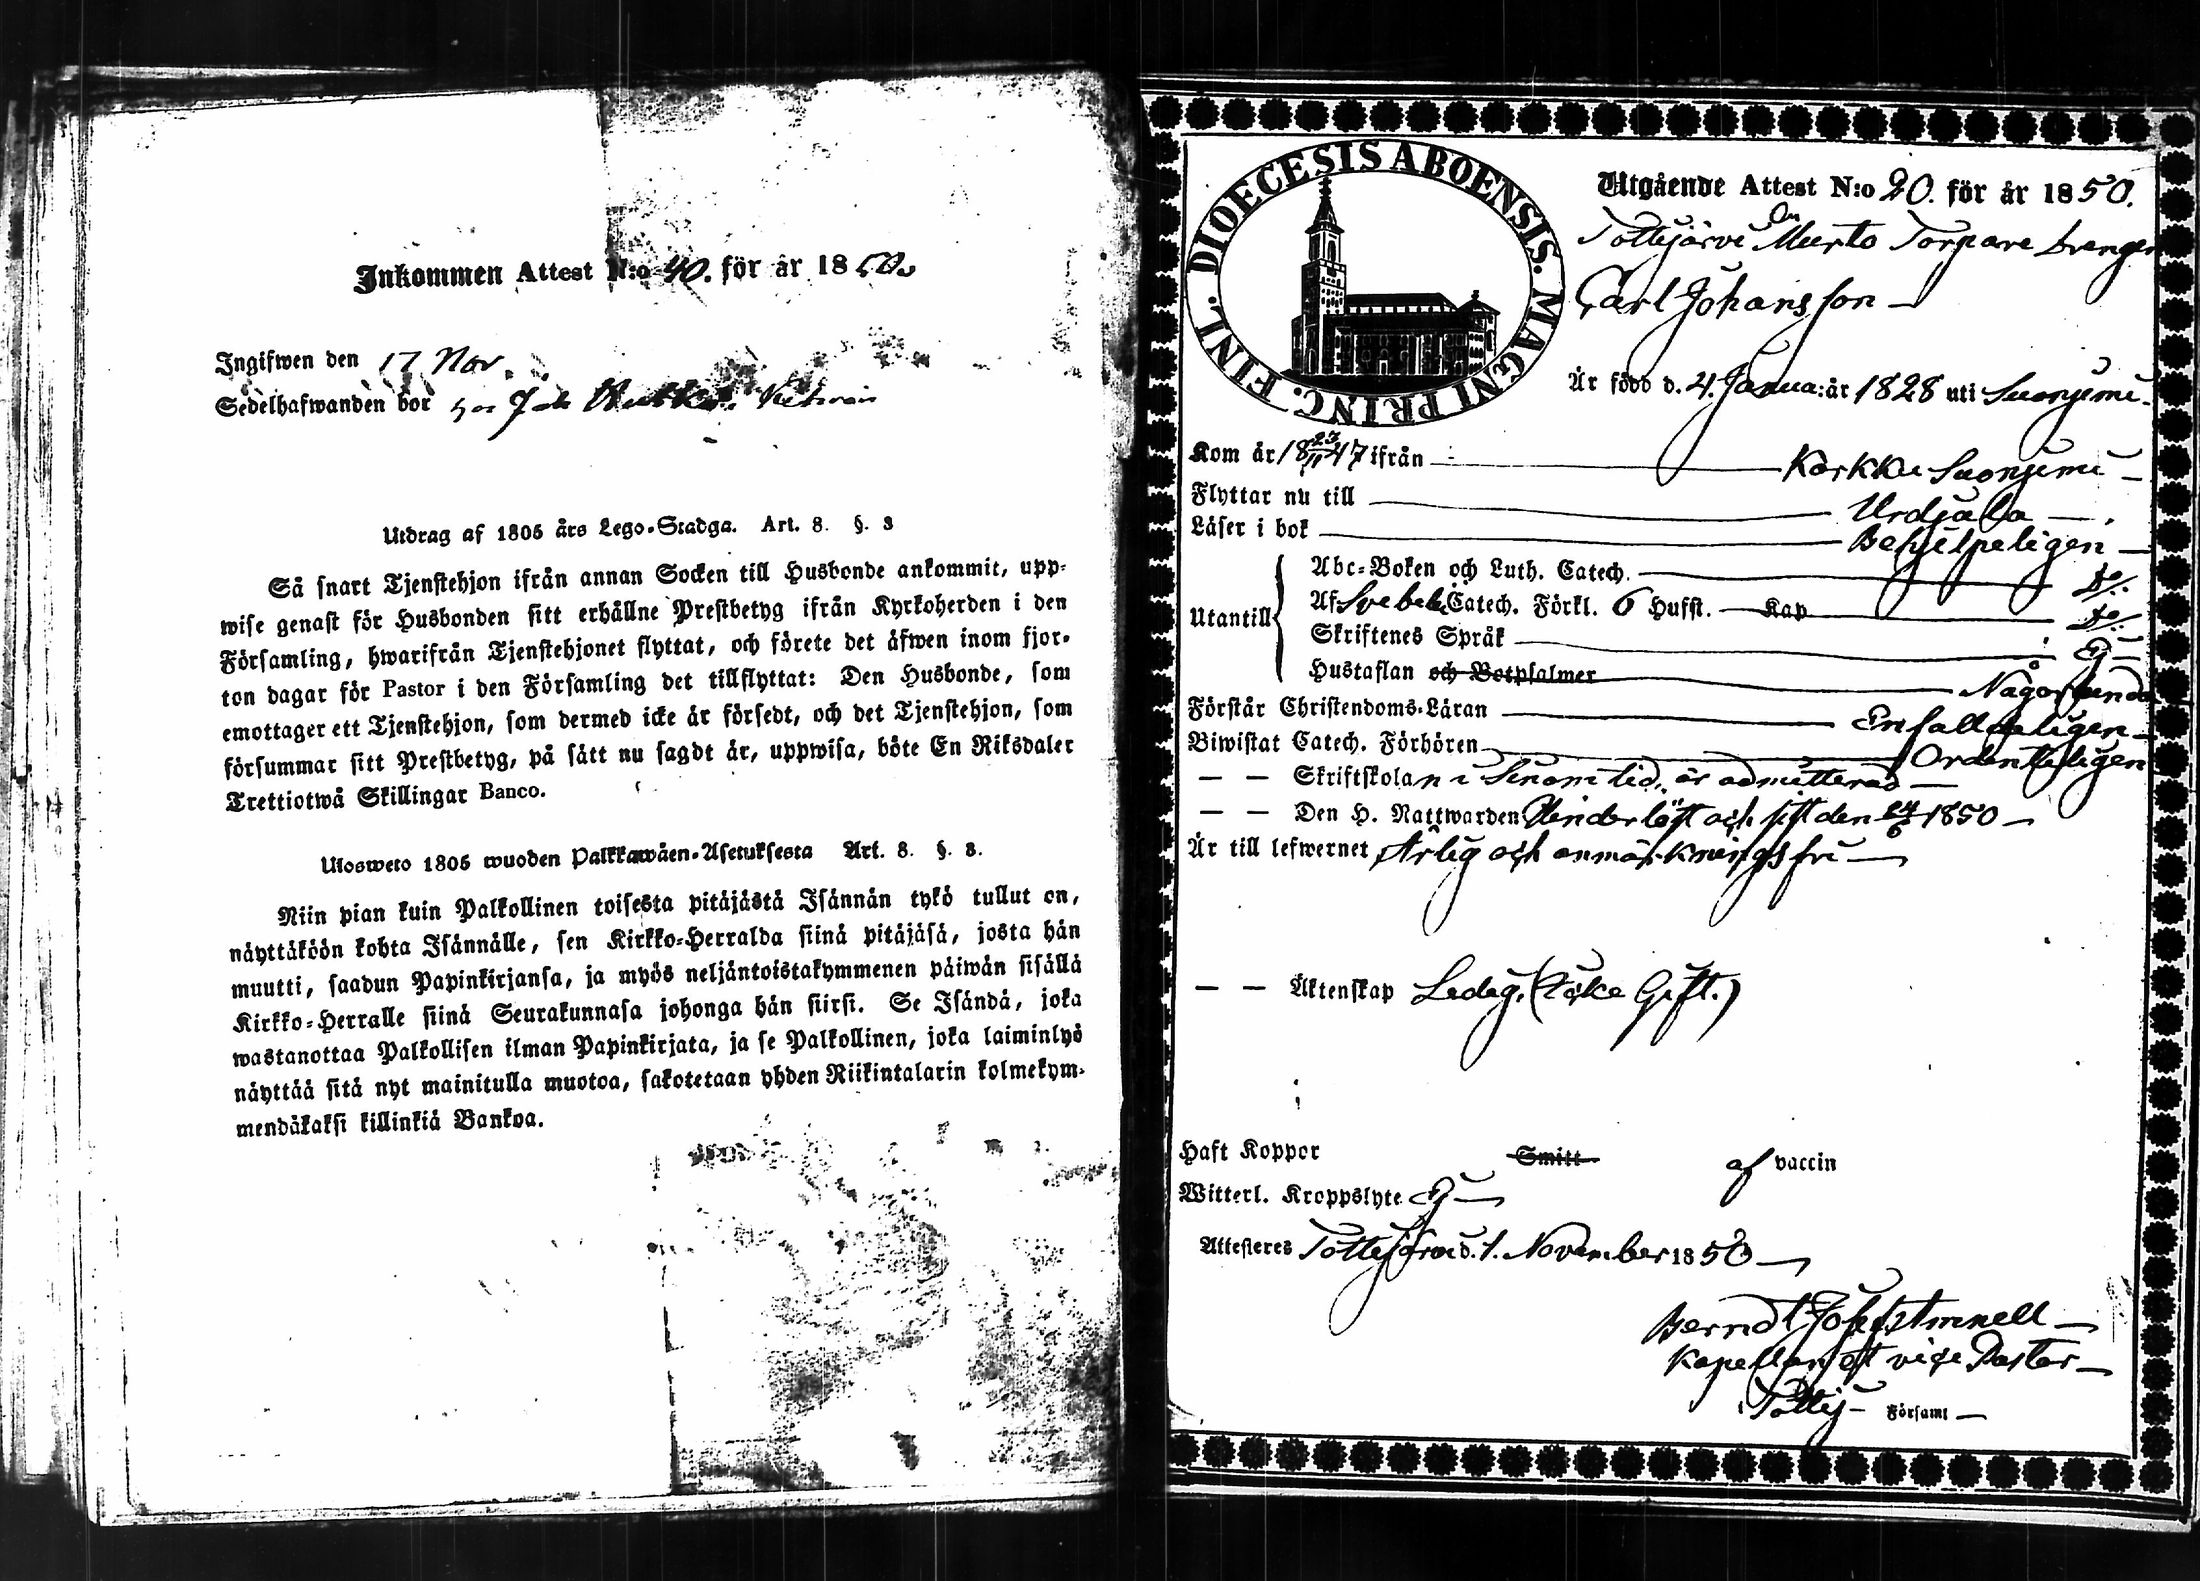 Inkommen Attest N:o 40. för år 1850.
Ingifwen den 17 Nov.
Sedelhafwanden bor hos
Utdrag af 1805 års Lego-Stadga. Art. 8. §. 3
Så snart Tjenstehjon ifrån annan Socken till Husbonde ankommit, upp-
wise genast för Husbonden sitt erhållne Prestbetyg ifrån Kyrkoherden i den
Församling, hwarifrån Tjenstehjonet flyttat, och förete det äfwen inom fjor-
ton dagar för Pastor i den Församling det tillflyttat: Den Husbonde, som
emottager ett Tjenstehjon, som dermed icke är försedt, och det Tjenstehjon, som
försummar sitt Prestbetyg, på sätt nu sagdt är, uppwisa, böte En Riksdaler
Trettiotwå Skillingar Banco.
Ulosweto 1805 wuoden Palkkawäen-Asetuksesta Art. 8. §. 3.
Niin pian kuin Palkollinen toisesta pitäjästä Isännän tykö tullut on,
näyttäköön kohta Isännälle, sen Kirkko-Herralda siinä pitäjäsä, josta hän
muutti, saadun Papinkirjansa, ja myös neljäntoistakymmenen päiwän sisällä
Kirkko-Herralle siinä Seurakunnasa johonga hän siirsi. Se Isändä, joka
wastanottaa Palkollisen ilman Papinkirjata, ja se Palkollinen, joka laiminlyö
näyttää sitä nyt mainitulla muotoa, sakotetaan yhden Riikintalarin kolmekym-
mendäkaksi killinkiä Bankoa.
DIOECESIS ABOENSIS. MAGNI PRINC. FINL.
Utgående Attest N:o 20. för år 1850.
Tottijärvi Murto Torpare drengen
Carl Johansson
Är född d. 4. Janua: år 1828 uti Suonjemi.
Kom år 18 23/11 47 ifrån Karkku Suonjemi
Flyttar nu till Urdjala
Läser i bok Behjelpeligen
Utantill
Abc-Boken och Luth. Catech. Do.
Af Svebeli Catech. Förkl. 6 Hufst. Kap Do.
Skriftenes Språk Ej
Hustaflan och Botpsalmer Någorlunda
Förstår Christendoms-Läran Enfalldeligen
Biwistat Catech. Förhören Ordenteligen
— — Skriftskolan i sinom tid, är admitterad
— — Den H. Nattwarden Oförderfvat och sist den 24/6 1850
Är till lefwernet Ärlig och anmärkningsfri
— — Äktenskap Ledig. (Icke Gift.)
Haft Koppor Smitt af vaccin
Witterl. Kroppslyte Ej
Attesteres Tottijärvi d. 1. November 1850
Berndt Joh.
Kapellan et vice Pastor
i Tottij Församl